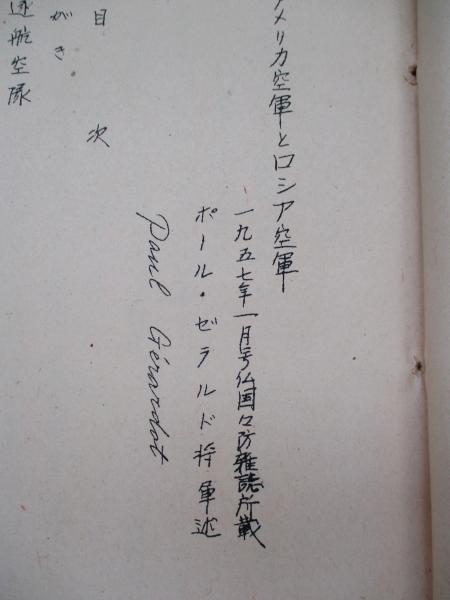 メリカ空軍とロシア空軍
一九五七年一月号仏国々防雑誌所載
ポール・ゼラルド将軍述
Paul Gérardot
目次
がき
逐航空隊